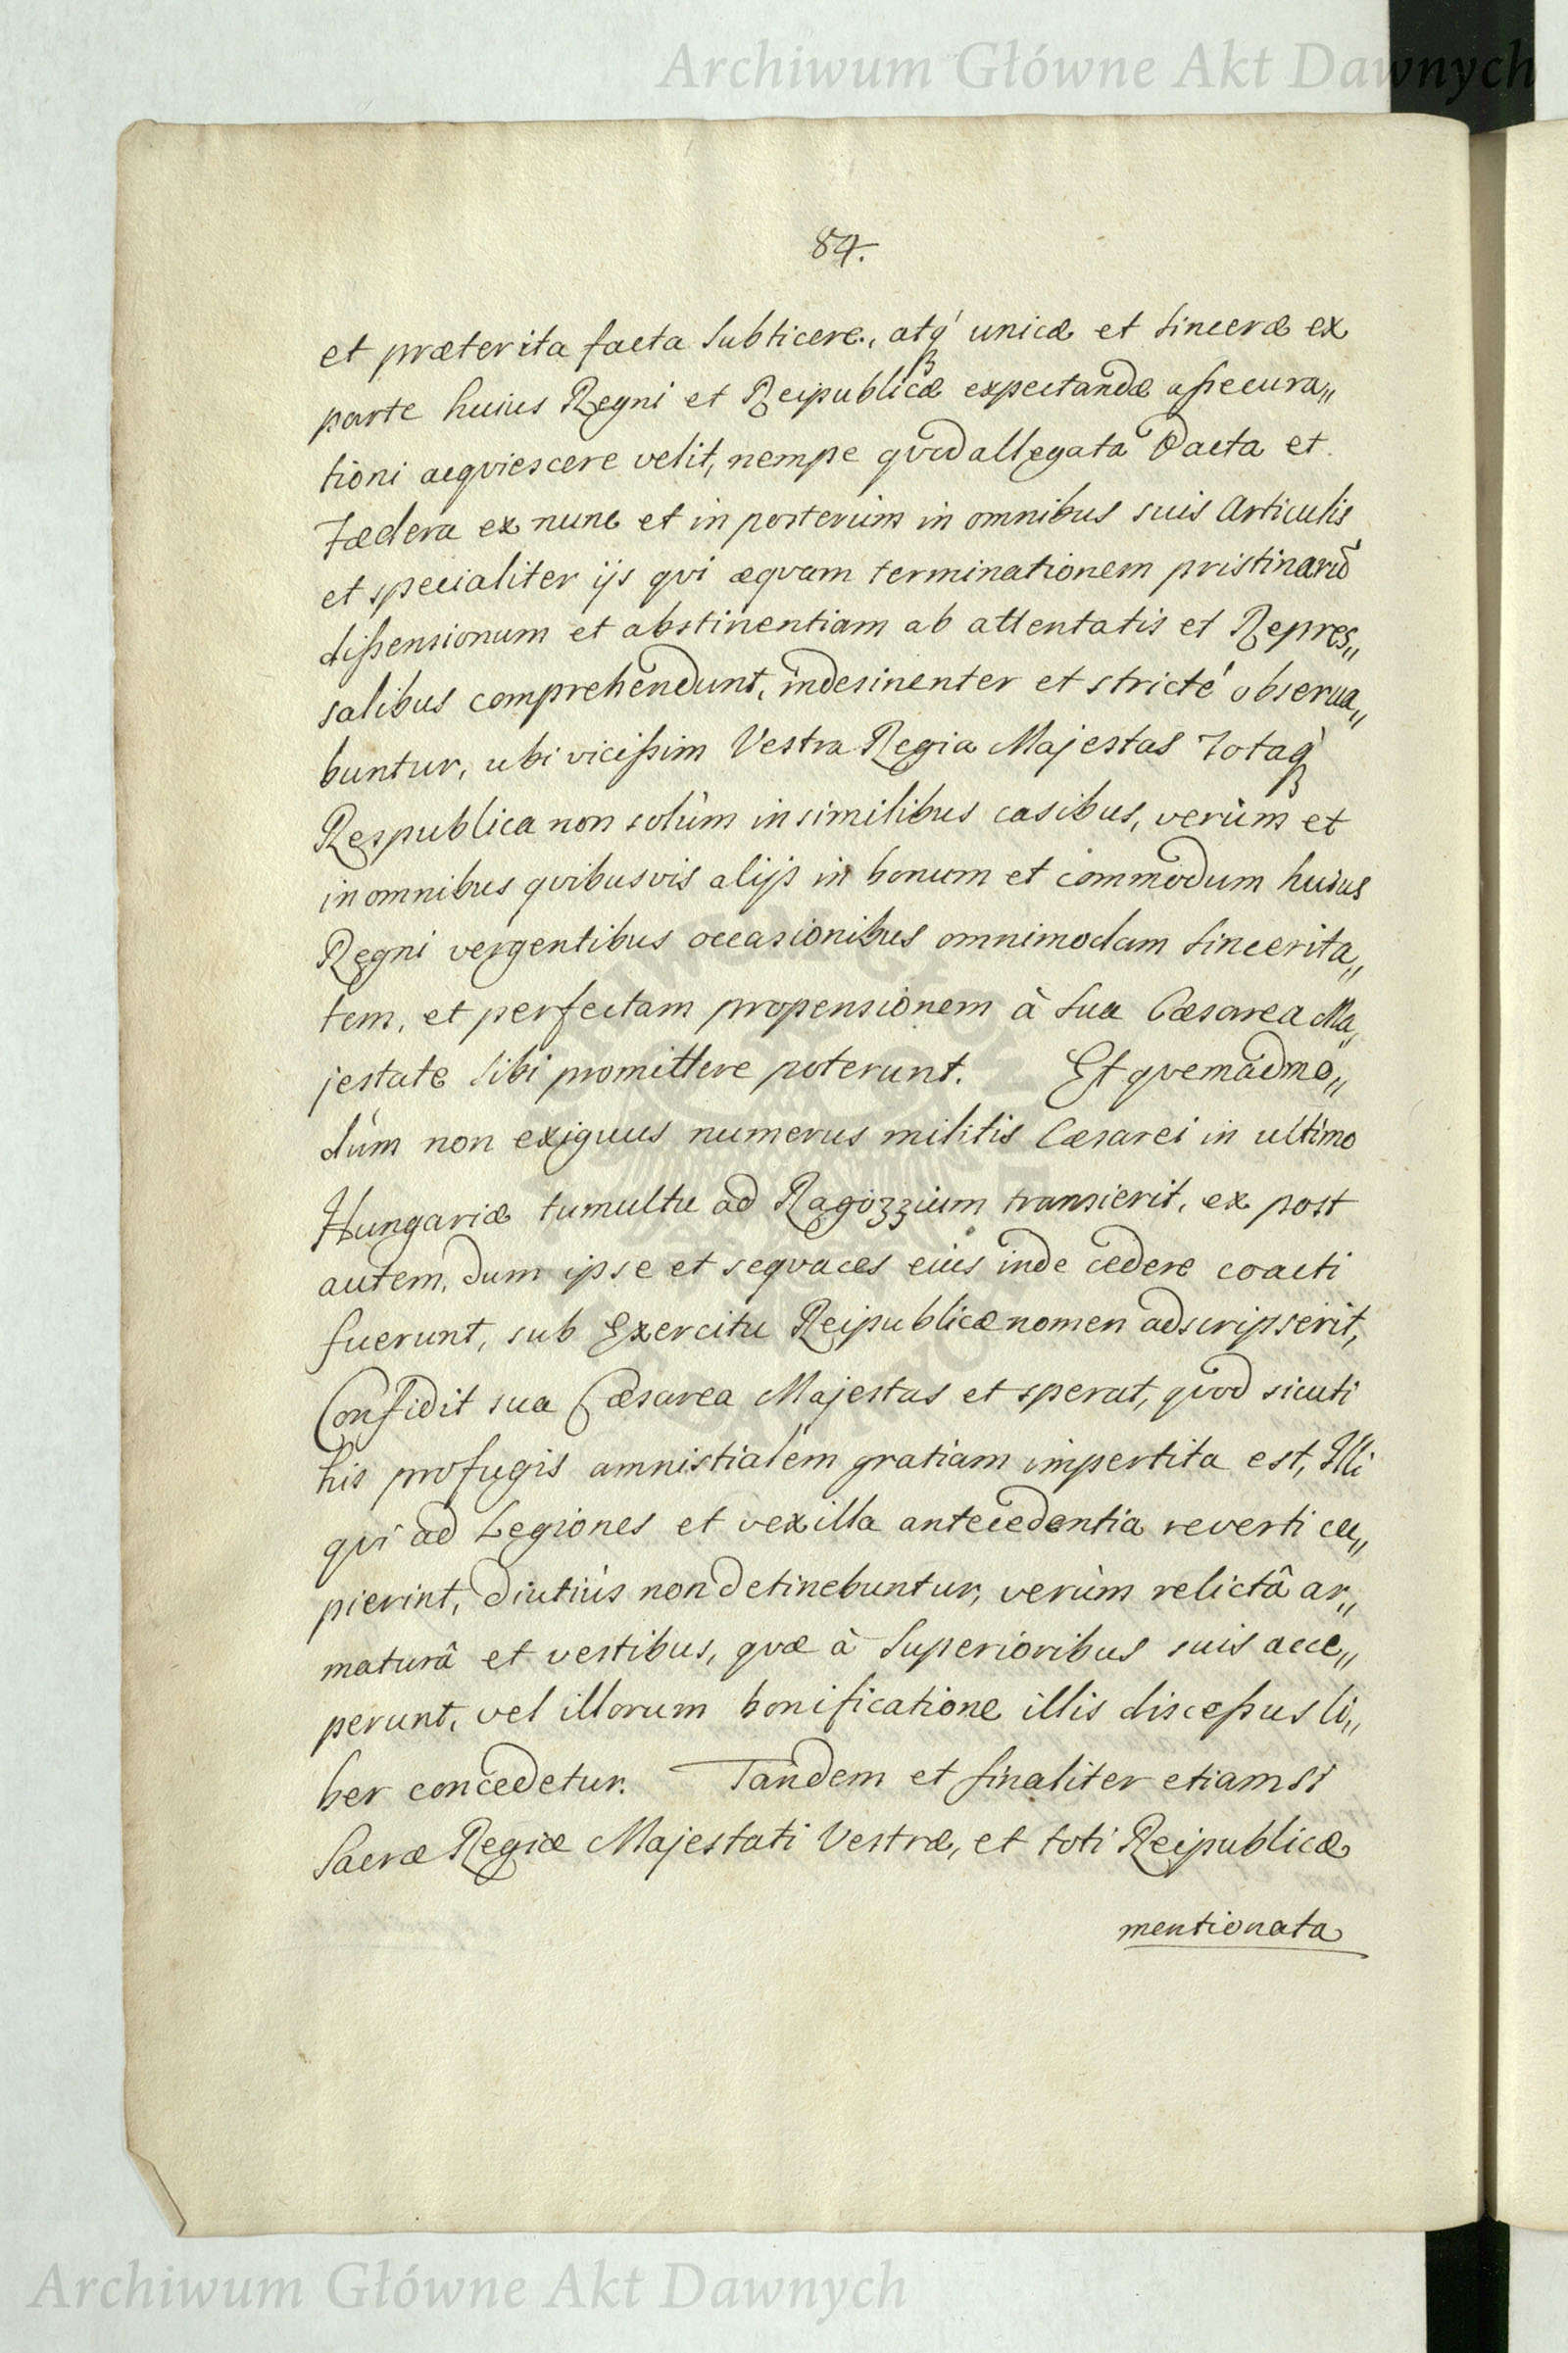 Archiwum Główne Akt Dawnych
84.
et præterita facta subticere, atq́ʒ unicæ et sinceræ ex
parte huius Regni et Reipublicæ expectandæ aßecura„
tioni acqviescere velit, nempe qvod allegata Pacta et
Fœdera ex nunc et in posterum in omnibus suis Articulis
et specialiter ijs qvi æqvam terminationem pristinarũ
dißensionum et abstinentiam ab attentatis et Repres„
salibus comprehendunt, indesinenter et stricté observa„
buntur, ubi vicißim Vestra Regia Majestas Totaq́ʒ
Respublica non solùm in similibus casibus, verùm et
in omnibus qvibusvis alijs in bonum et commodum huius
Regni vergentibus occasionibus omnimodam sincerita„
tem, et perfectam propensionem à sua Cæsarea Ma„
jestate sibi promittere poterunt. Et qvemadmo„
dùm non exiguus numerus militis Cæsarei in ultimo
Hungariæ tumultu ad Ragozzium transierit, ex post
autem, dum ipse et seqvaces eius inde cedere coacti
fuerunt, sub Exercitu Reipublicæ nomen adscripserit,
Confidit sua Cæsarea Majestas et sperat, qvod sicuti
his profugis amnistialem gratiam impertita est, Illi
qvi ad Legiones et vexilla antecedentia reverti cu„
pierint, diutiùs non detinebuntur, verùm relictâ ar„
maturâ et vestibus, qvæ à Superioribus suis acce„
perunt, vel illorum bonificatione illis disceßus li„
ber concedetur. Tandem et finaliter etiamsi
Sacræ Regiæ Majestati Vestræ, et toti Reipublicæ
mentionata
Archiwum Główne Akt Dawnych